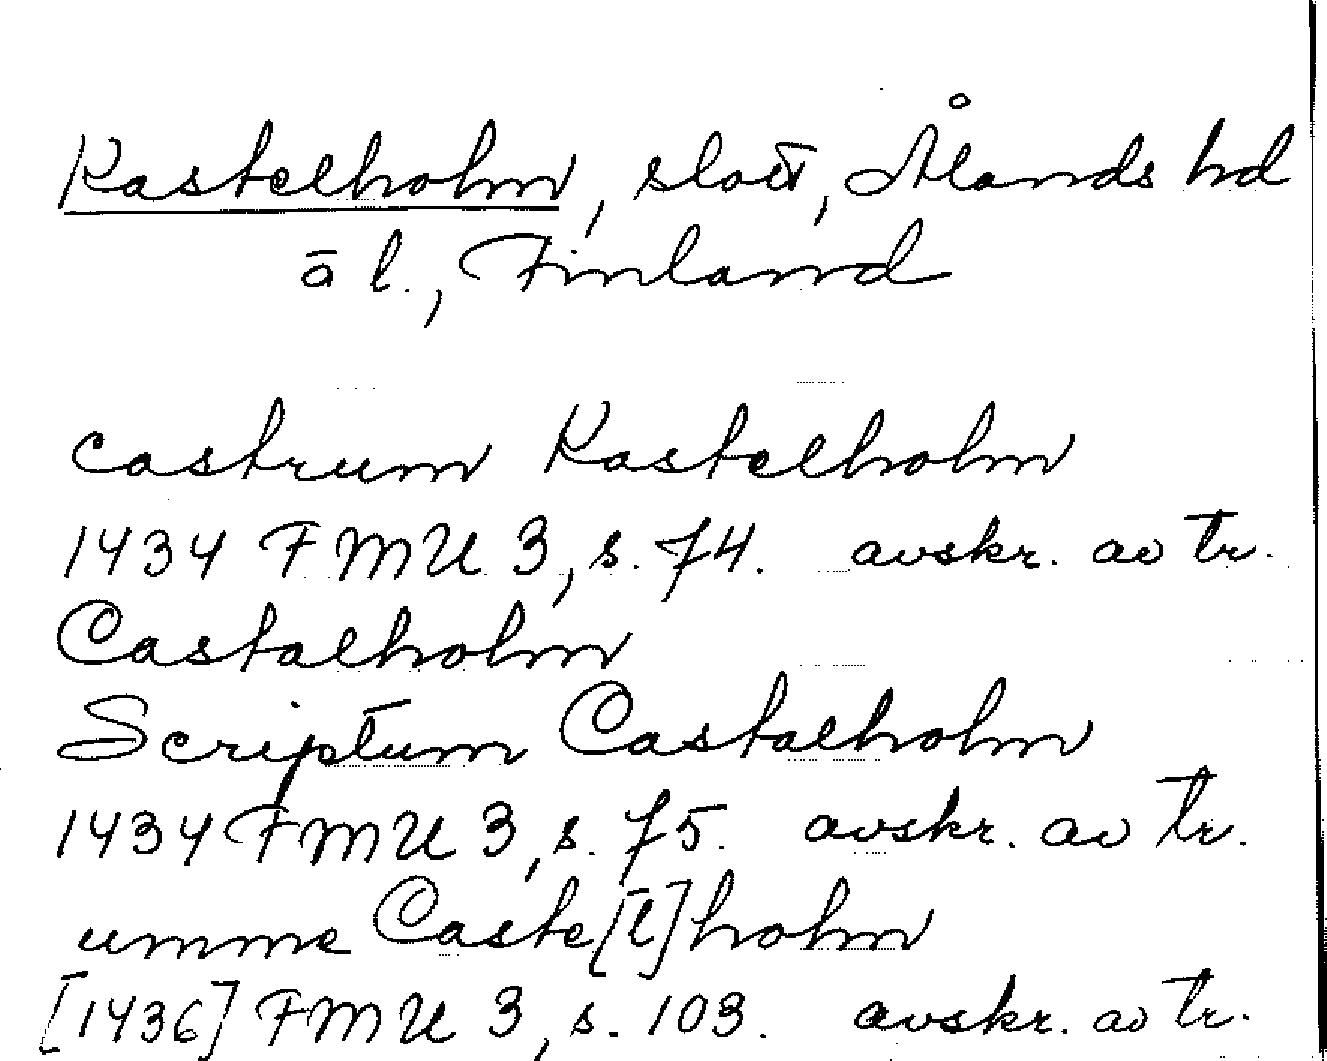 Kastelholm, slott, Ålands hd
ā l., Finland
castrum Kastelholm
1434 FMU 3, s. 74. avskr. av tr.
Castalholm
Scriptum Castalholm
1434 FMU 3, s. 75. avskr. av tr.
umme Caste[l]holm
[1436] FMU 3, s. 103. avskr. av tr.